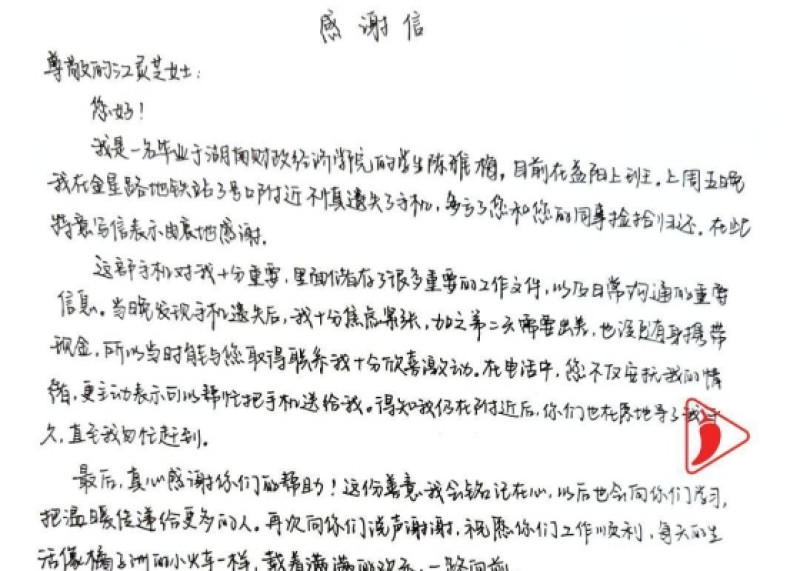 感谢信
尊敬的江灵芝女士：
您好！
我是一名毕业于湖南财政经济学院的学生陈雅梅，目前在益阳上班。上周五晚
我在金星路地铁站3号口附近不慎遗失了手机，多亏了您和您的同事捡拾归还。在此
特意写信表示由衷地感谢。
这部手机对我十分重要，里面储存了很多重要的工作文件，以及日常沟通的重要
信息。当晚发现手机遗失后，我十分焦虑紧张，加之第二天需要出差，也没随身携带
现金，所以当时能与您取得联系我十分欣喜激动。在电话中，您不仅安抚我的情
绪，更主动表示可以帮忙把手机送给我。得知我仍在附近后，你们也在原地等了我许
久，直至我匆忙赶到。
最后，真心感谢你们的帮助！这份善意我会铭记在心，以后也会向你们学习，
把温暖传递给更多的人。再次向你们说声谢谢，祝愿你们工作顺利，每天的生
活像橘子洲的小火车一样，载着满满的欢乐，一路向前